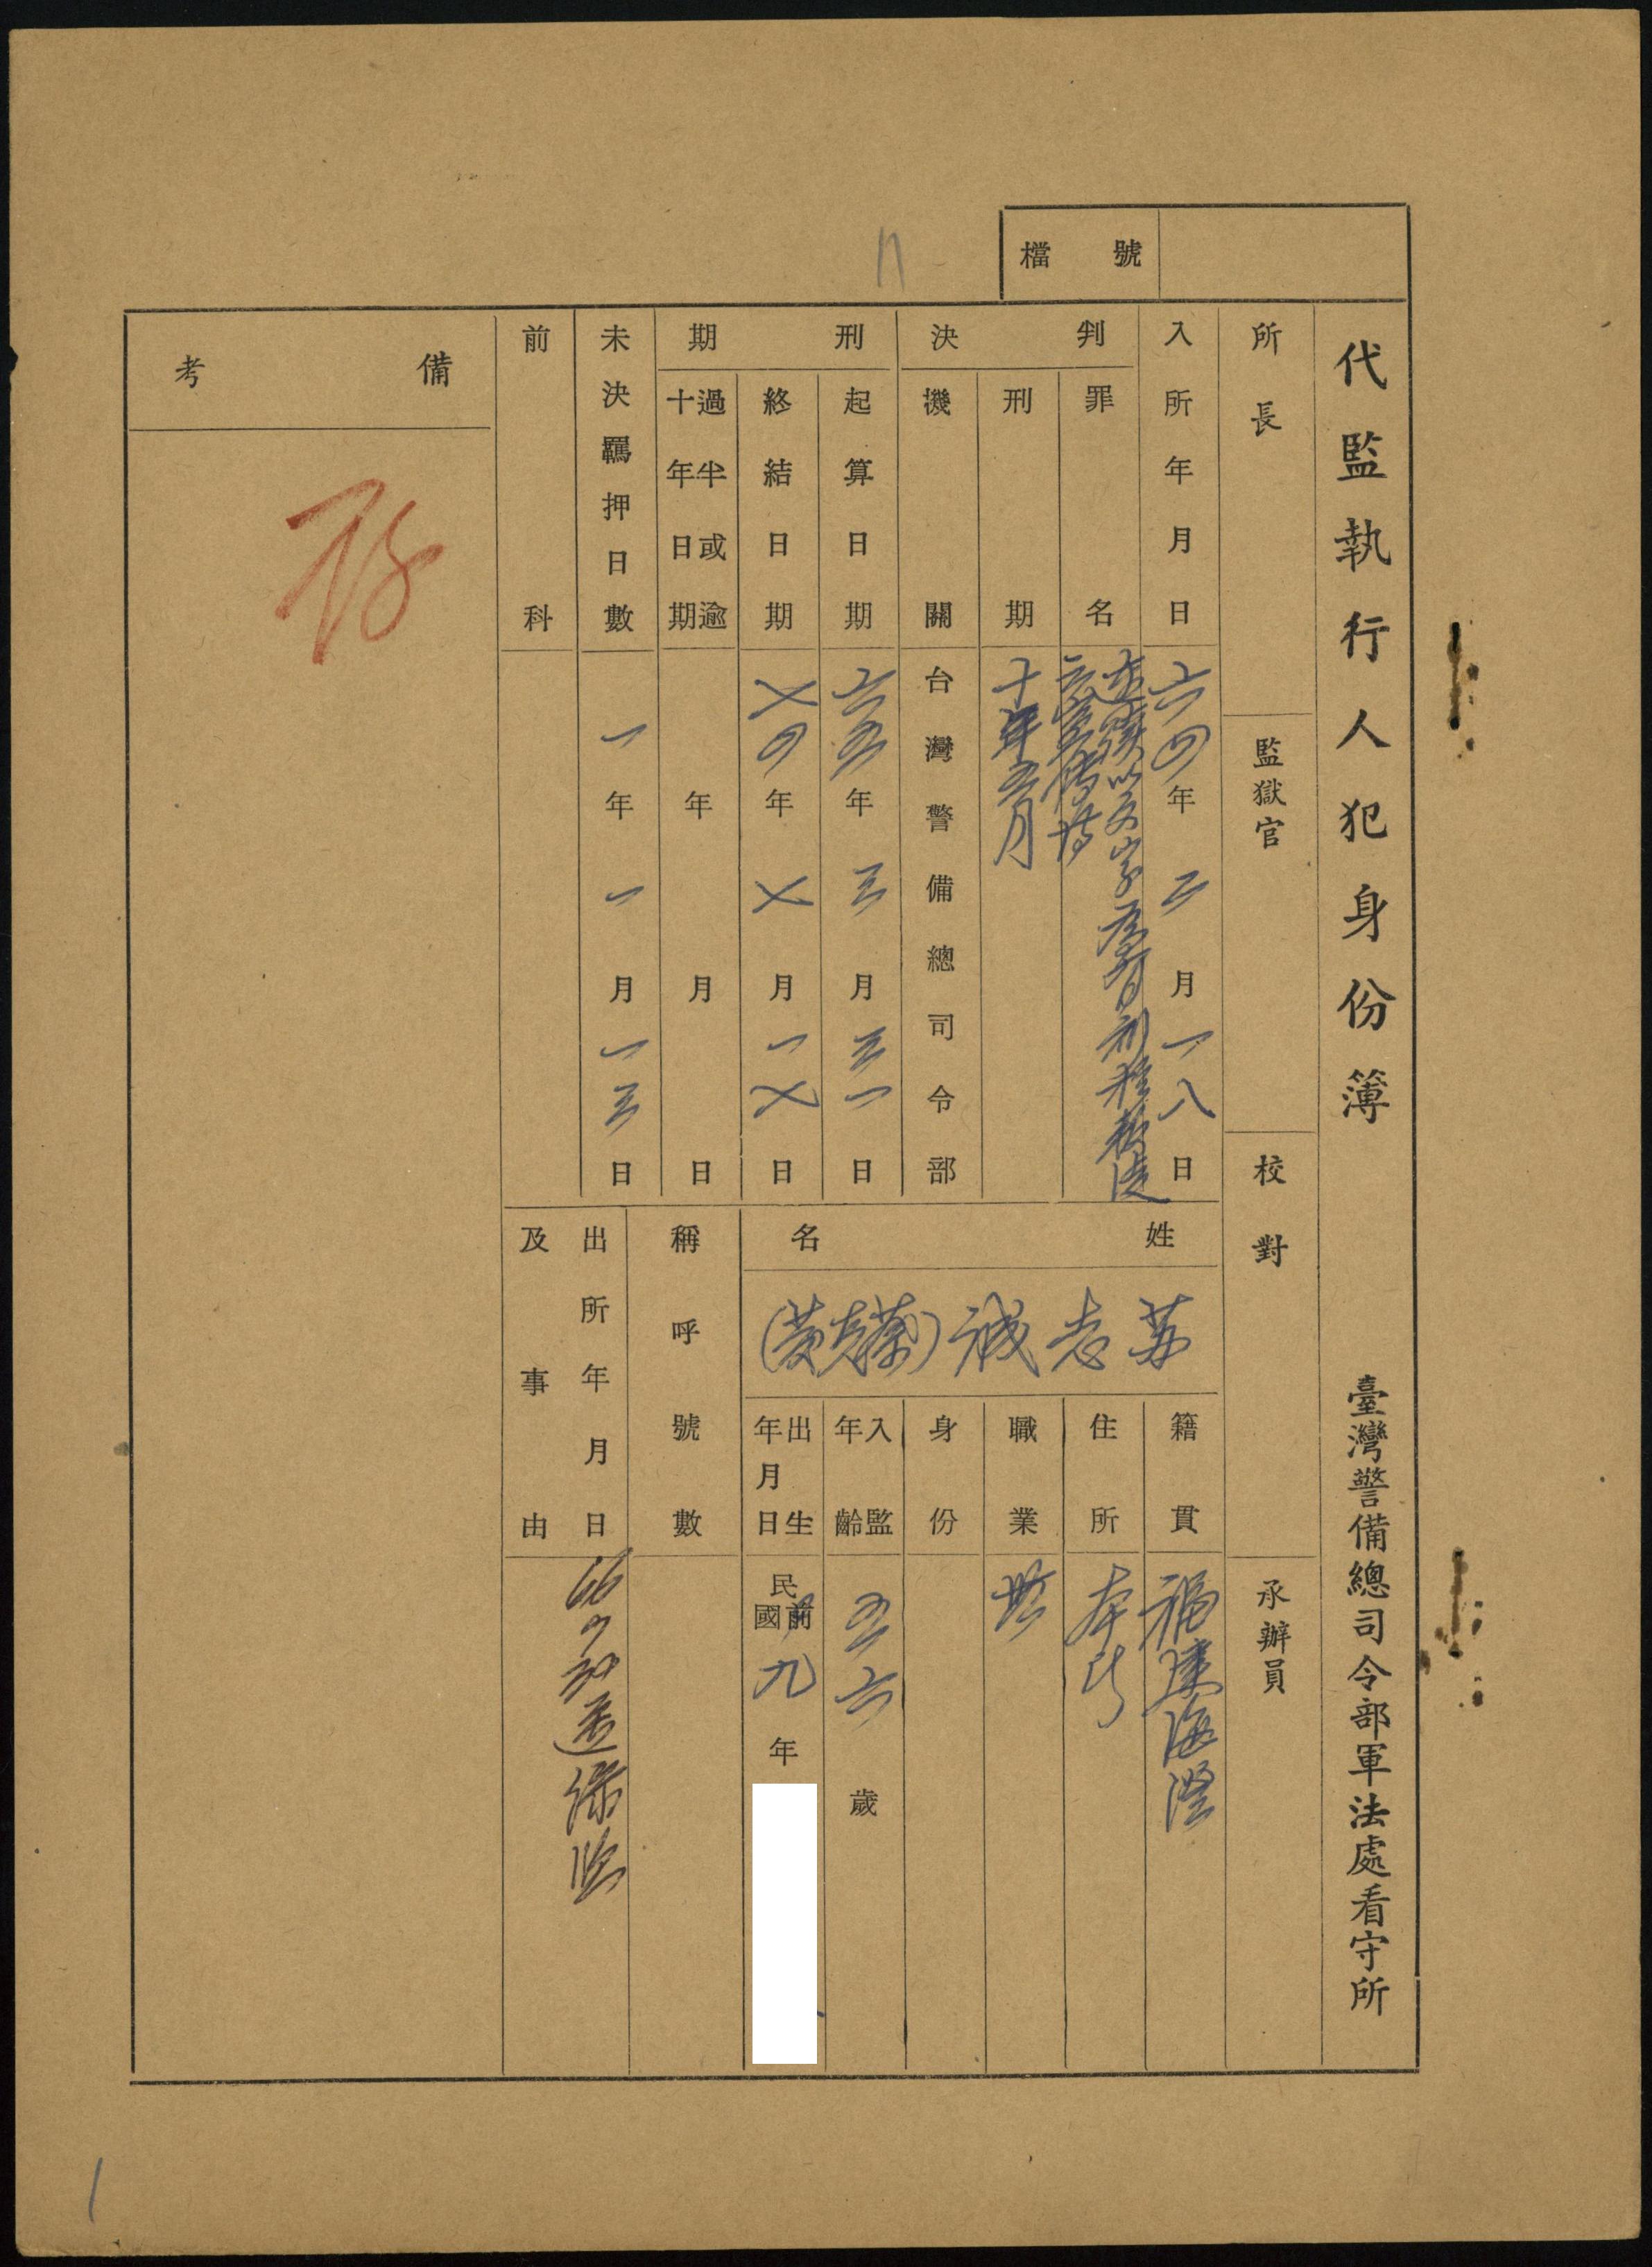 檔號
代監執行人犯身份簿
臺灣警備總司令部軍法處看守所
所長
監獄官
校對
承辦員
入所年月日
六四年二月一八日
判決
罪名
連續以文字為有利於叛徒
之宣傳
刑期
十年五月
機關
台灣警備總司令部
刑期
起算日期
六五年三月三一日
終結日期
七四年七月一七日
過半或逾
十年日期
年月日
未決羈押日數
一年一月一三日
前科
姓名
志誠(黃
籍貫
福建海澄
住所
本所
職業
無
身份
入監
年齡
五六歲
出生
年月日
民國前九年
稱呼號數
出所年月日
及事由
66
備考
存